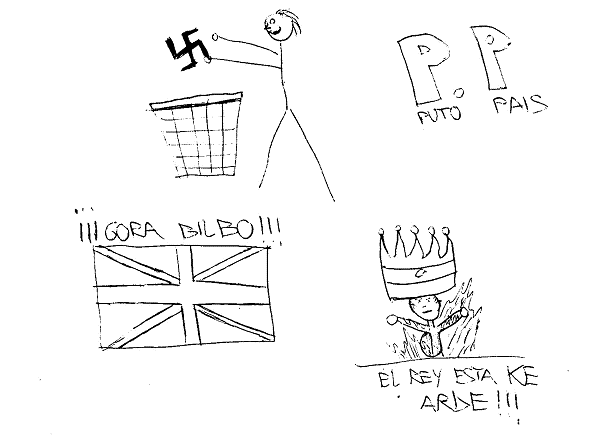 P.P
PUTO PAIS
¡¡¡GORA BILBO!!!
EL REY ESTA KE
ARDE!!!